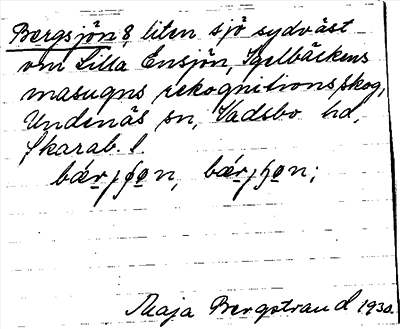 Bergsjön 8, liten sjö sydväst
om Lilla Ensjön, Igelbäckens
masugns rekognitionsskog,
Undenäs sn, Vadsbo hd,
Skarab. l.
Maja Bergstrand 1930.